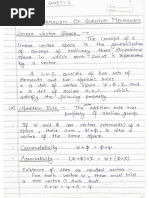 UNIT-I
FORMALISM OF QUANTUM MECHANICS
Linear Vector Space → The concept of a
linear vector space is the generalization
of concept of ordinary three dimensional
space in which each point is represented
by a vector.
A L.V.S consists of two sets of
elements and two algebraic
rules. A set of vectors
and a set of scalars
a rule for addition and for scalar
multiply following properties.
(a) Addition Rule → The addition rule has
property of abelian group.
If Ψ and Φ are vectors (elements) of a
space, their sum Ψ + Φ is also a
vector of the same space.
Commutativity Ψ + Φ = Φ + Ψ
Associativity (Ψ + Φ) + X = Ψ + (Φ + X)
Existence of zero or neutral vector -
for each vector Ψ, there must exist
a zero vector 0 such that